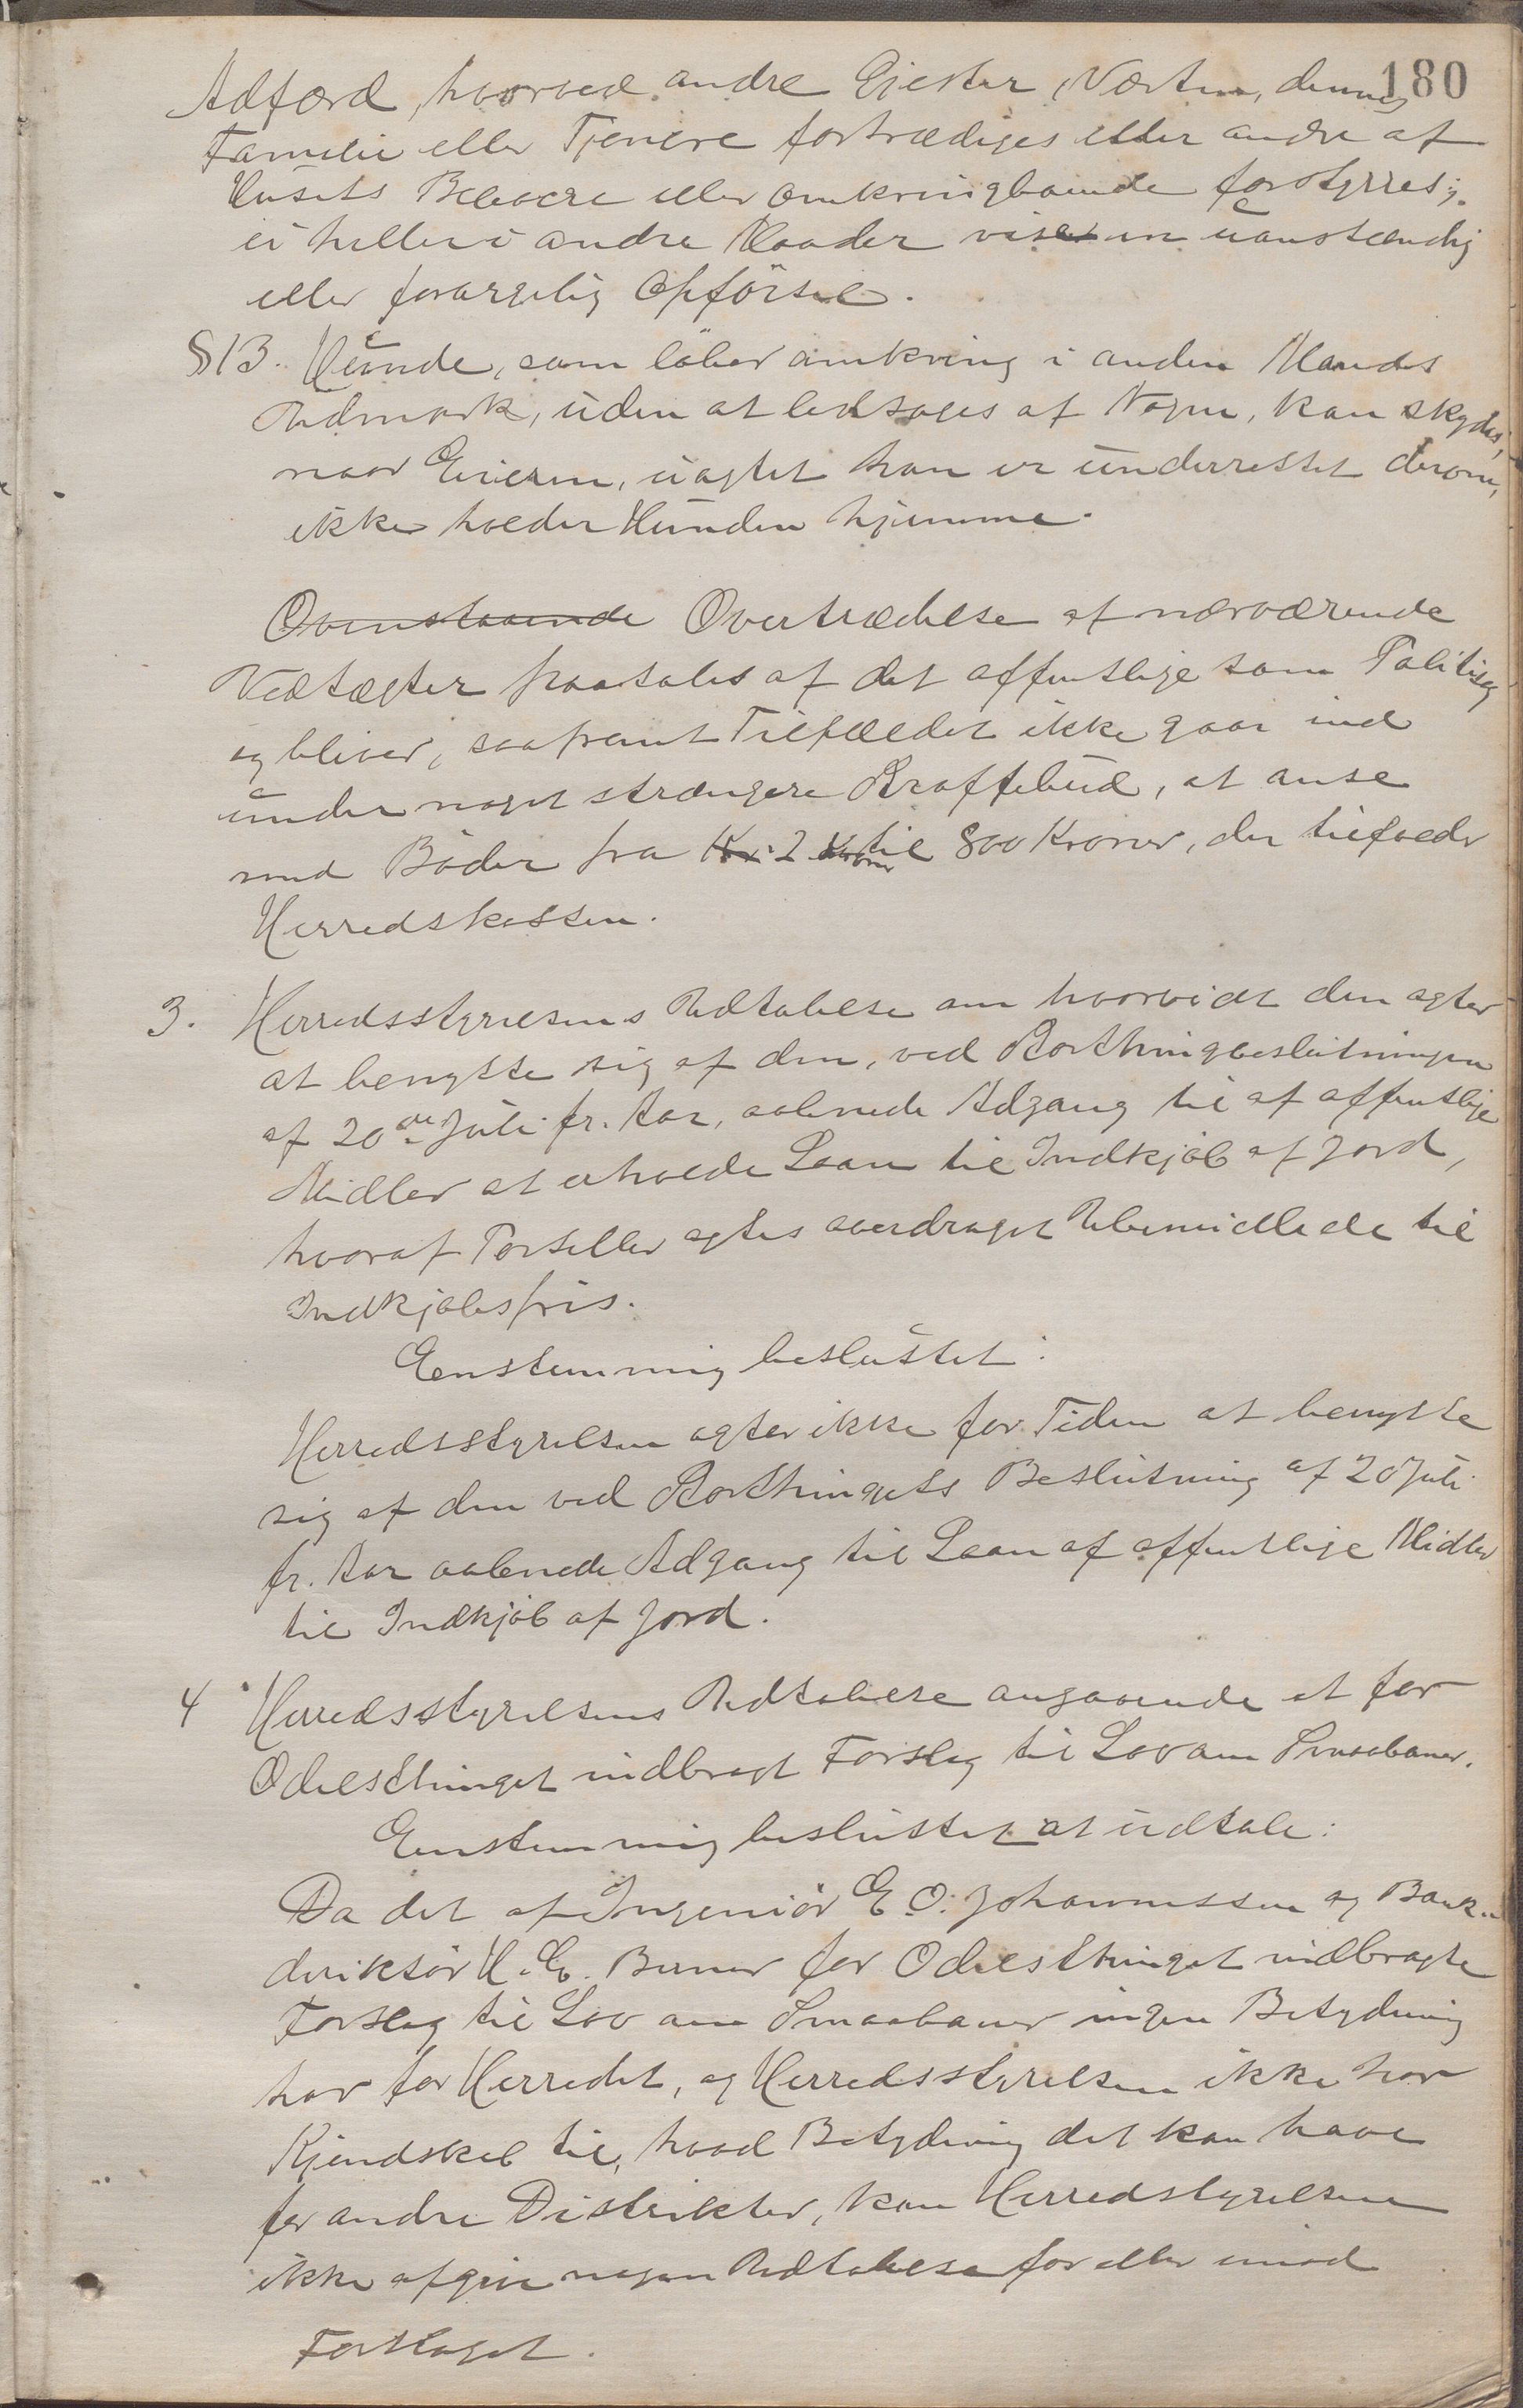 180
Adfærd, hvorved andre Gjester, Værten, dennes
Familie eller Tjenere fortrædiges eller andre af
Husets Beboere eller omkringboende forstyrres;
ei heller i andre Maader vise en uanstændig
eller forargelig Opførsel.
§ 13. Hunde, som løber omkring i anden Mands
Udmark, uden at ledsages af Nogen, kan skydes,
naar Eieren, uagtet han er underrettet derom,
ikke holder Hunden hjemme.
Ovenstaaende Overtrædelse af nærværende
Vedtægter paatales af det offentlige som Politisag
og bliver, saafremt Tilfældet ikke gaar ind
under noget strængere Straffebud, at anse
med Bøder fra Kr. 2 Kroner til 800 Kroner, der tilfalder
Herredskassen.
3. Herredsstyrelsens Udtalelse om hvorvidt den agter
at benytte sig af den, ved Storthingbeslutningen
af 20de Juli fr. Aar, aabnede Adgang til af offentlige
Midler at erholde Laan til Indkjøb af Jord,
hvoraf Parseller agtes overdraget Ubemidlede til
Indkjøbspris.
Enstemmig besluttet:
Herredsstyrelsen agter ikke for Tiden at benytte
sig af den ved Storthingets Beslutning af 20 Juli
fr. Aar aabnede Adgang til Laan af offentlige Midler
til Indkjøb af Jord.
4 Herredsstyrelsens Udtalelse angaaende et for
Odelsthinget indbragt Forslag til Lov om Smaabaner.
Enstemmig besluttet at udtale:
Da det af Ingeniør E. O. Johannessen og Bank-
direktør H. E. Berner for Odelsthinget indbragte
Forslag til Lov om Smaabaner ingen Betydning
har for Herredet, og Herredsstyrelsen ikke har
Kjendskab til, hvad Betydning det kan have
for andre Distrikter, kan Herredstyrelsen
ikke afgive nogen Udtalelse for eller imod
Forslaget.